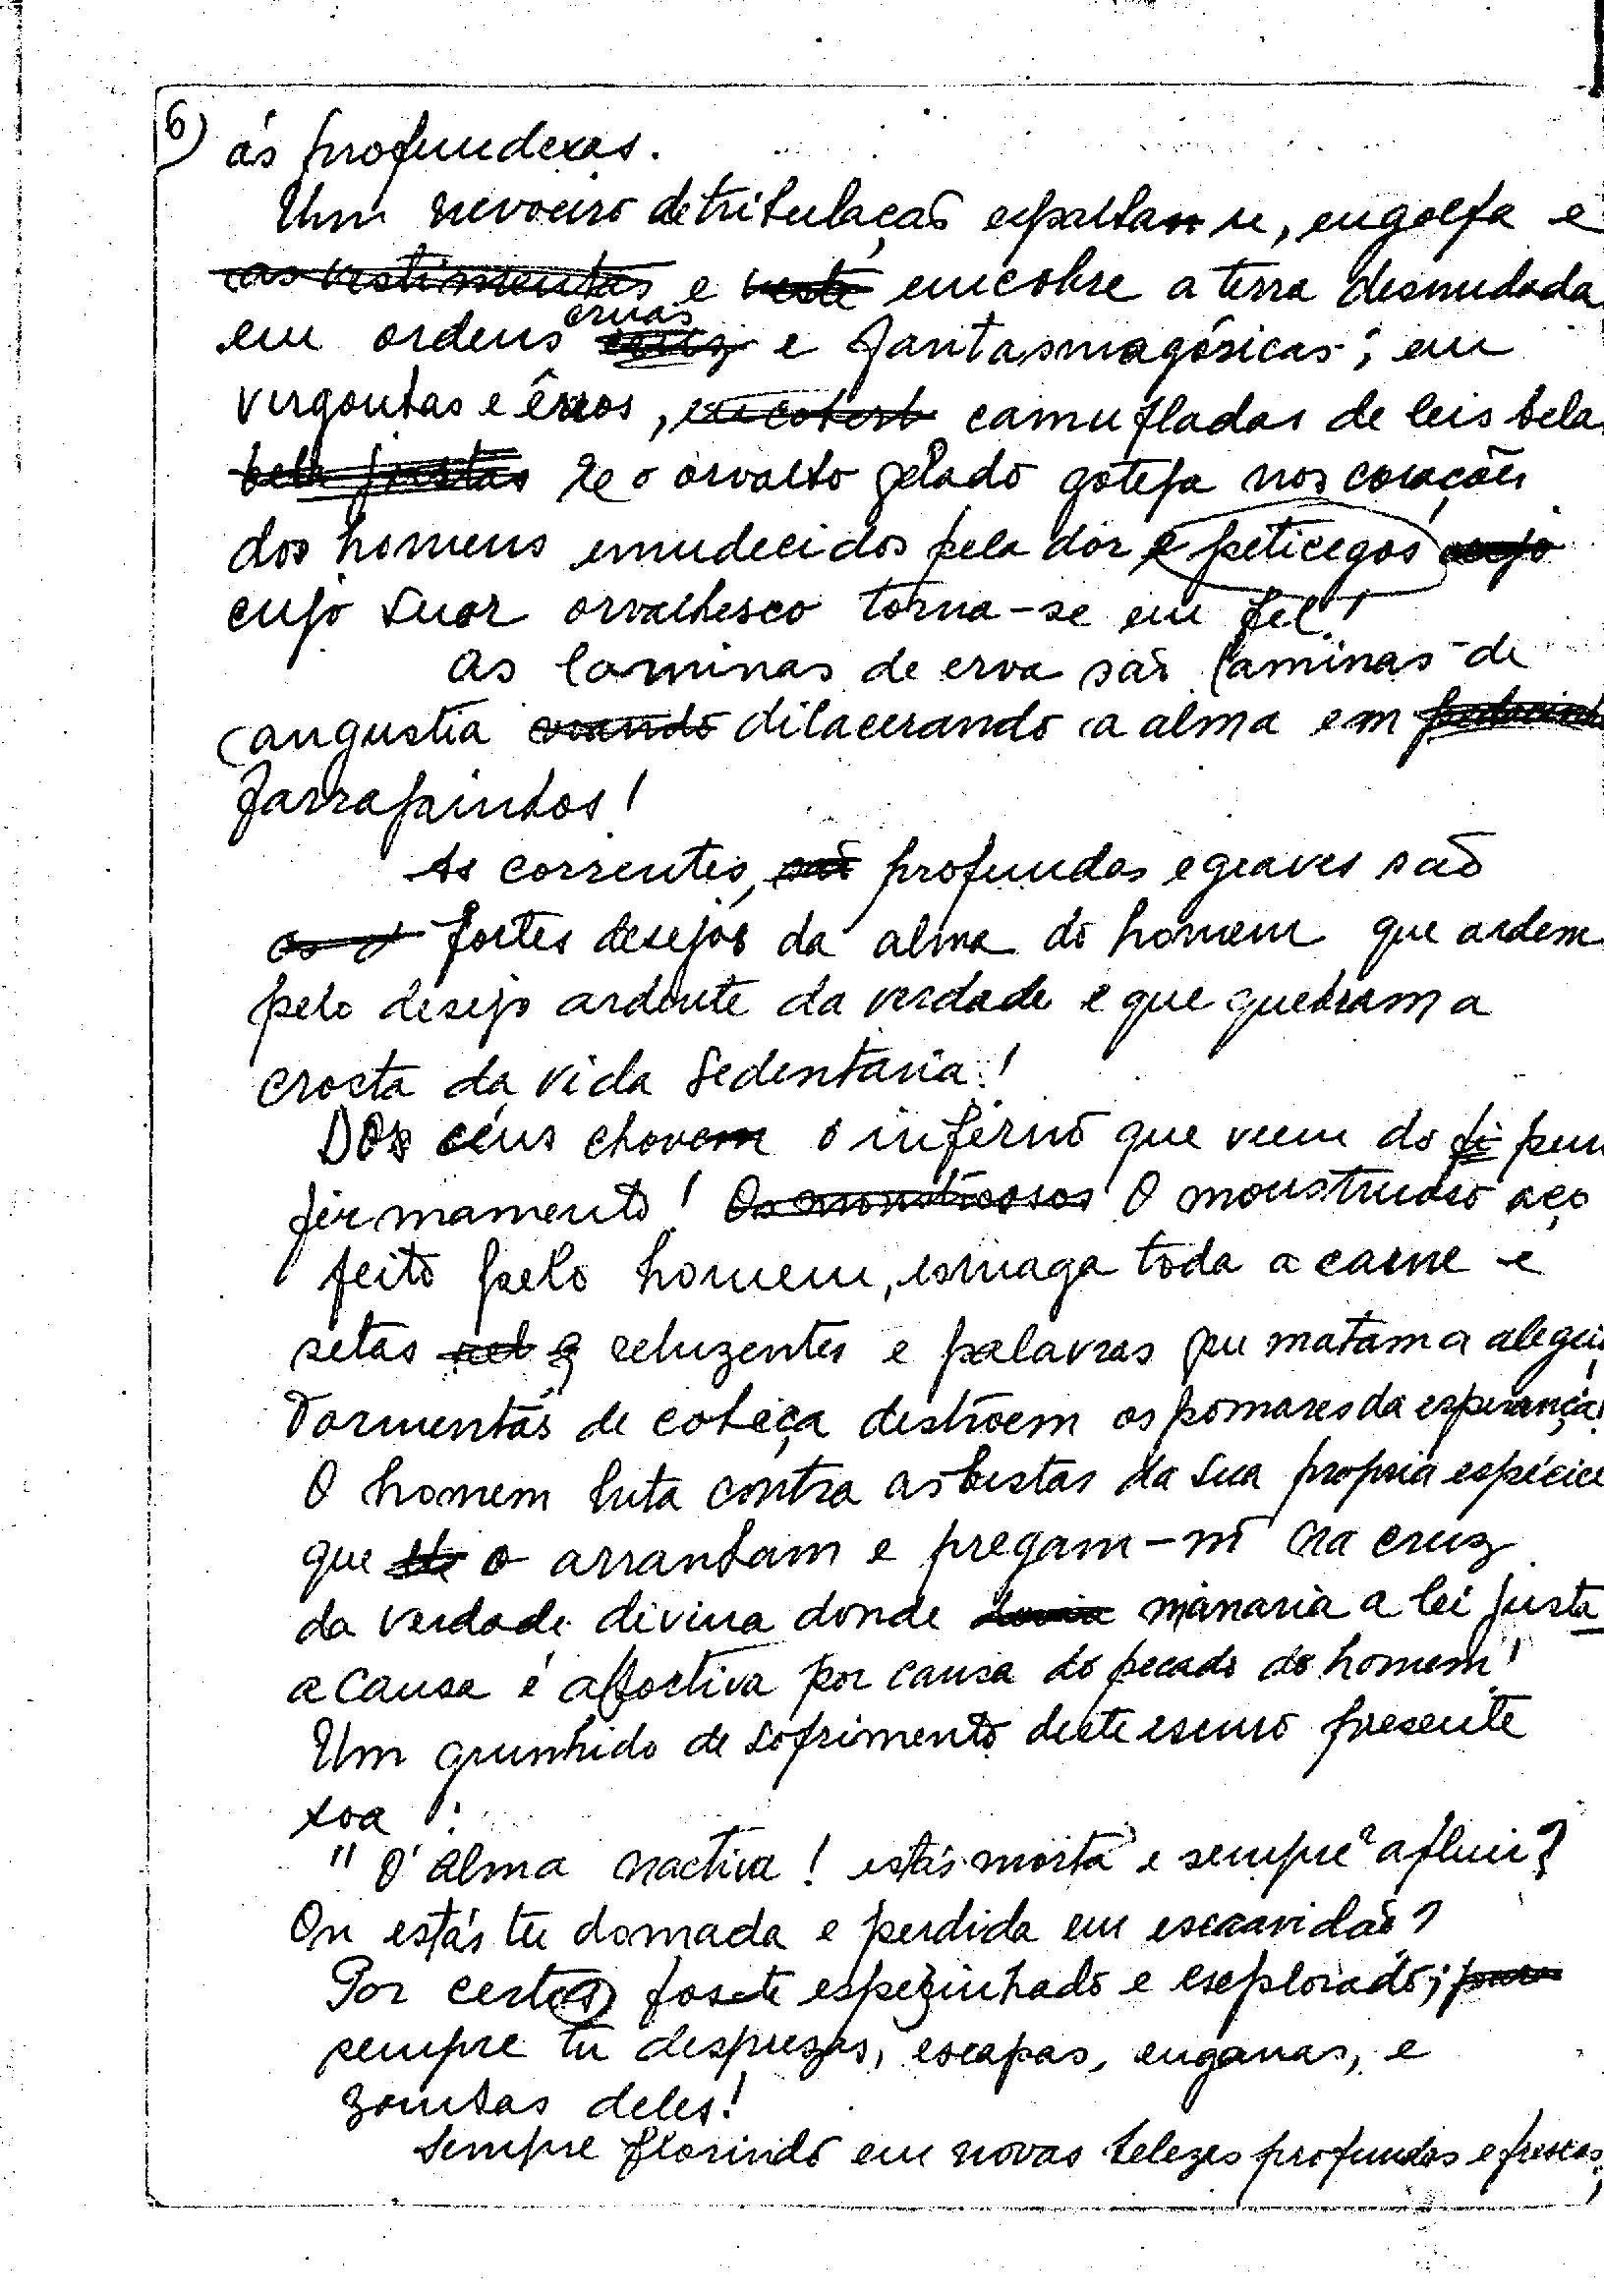 6)
ás profundezas.
Um nevoeiro de tribulação espalha se, engolfa e
as vestimentas e veste encobre a terra desnudada
em ordens cruas e fantasmagóricas; em
vergontas e êrros, encobert camufladas de leis bela
bela justas Se o orvalho gelado goteja nos corações
dos homens emudecidos pela dôr e peticegos cujo
cujo suor orvalhesco torna-se em fel!
As laminas de erva são laminas de
angustia dilacerando a alma em
farrapinhos!
As correntes, são profundas e graves são
fortes desejos da alma do homem que ardem
pelo desejo ardente da verdade e que quebram a
crosta da vida sedentaria!
Dos céus chovem o inferno que veem do fi
firmamento! Os monstroosos O monstruoso aço
feito pelo homem, esmaga toda a carne e
setas rel q reluzentes e palavras que matam a alegri
Tormentas de cobiça destroem os pomares da esperança!
O homem luta contra as bestas da sua propria espécie
que o arranham e pregam-no na cruz
da verdade divina donde manaria a lei justa
a causa é abortiva por causa do pecado do homem!
Um grunhido de sofrimento deste escuro presente
soa:
"O' alma inactiva! estás morta e sempre a fluir?
Ou estás tu domada e perdida em escravidão?
Por certo foste espezinhado e explorado; para
sempre tu desprezas, escapas, enganas, e
zombas deles!
Sempre florindo em novas belezas profundas e frescas;